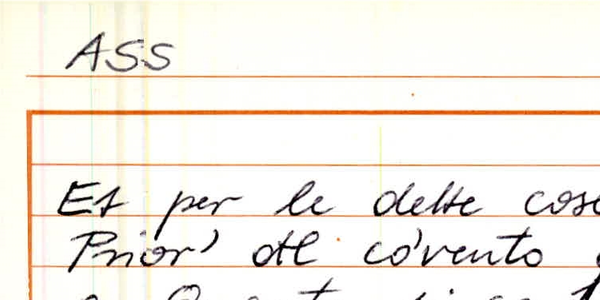 ASS
Et per le dette cose
Prior' dtl co'vento